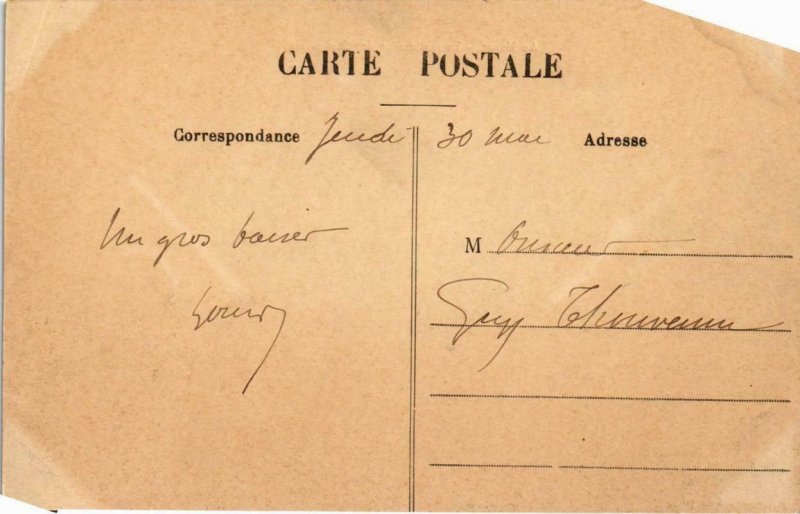 CARTE POSTALE
Correspondance Jeudi 30 mai Adresse
Un gros baiser
M onsieur
Guy Thouvenin